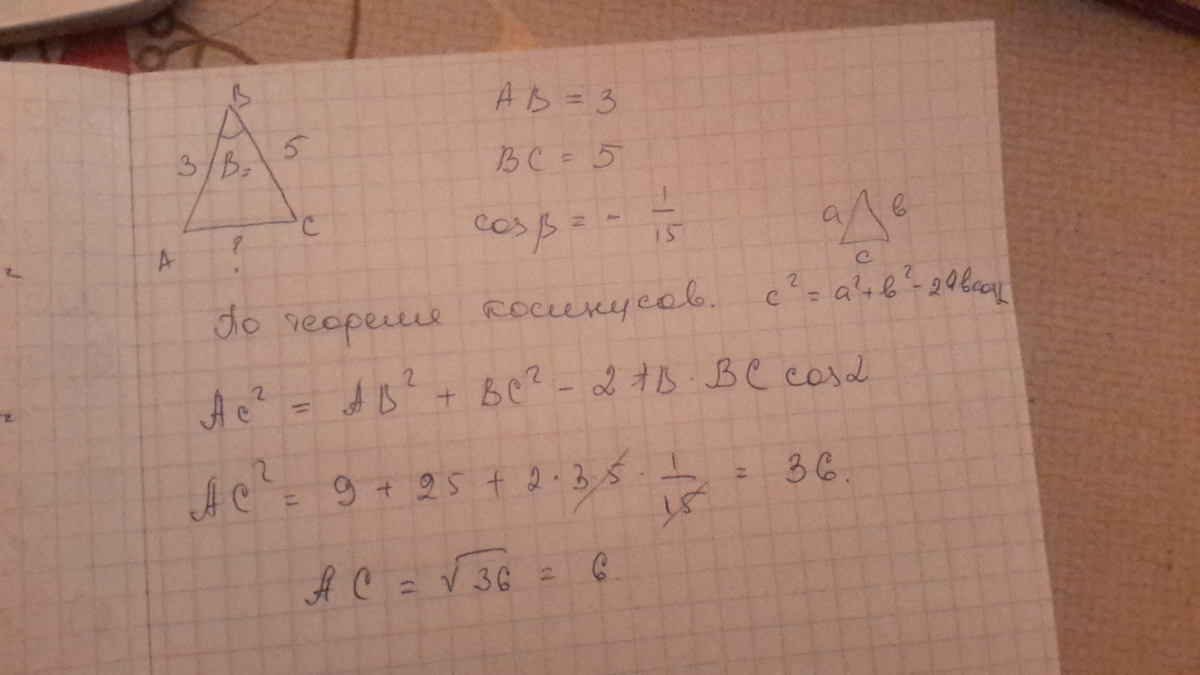 B
3 B= 5
A ? C
AB = 3
BC = 5
cosβ = - 1/15
a в
c
По теореме косинусов. c² = a² + в² - 2aвcosα
AC² = AB² + BC² - 2 AB · BC cosα
AC² = 9 + 25 + 2 · 3 · 5 · 1/15 = 36.
AC = √36 = 6.